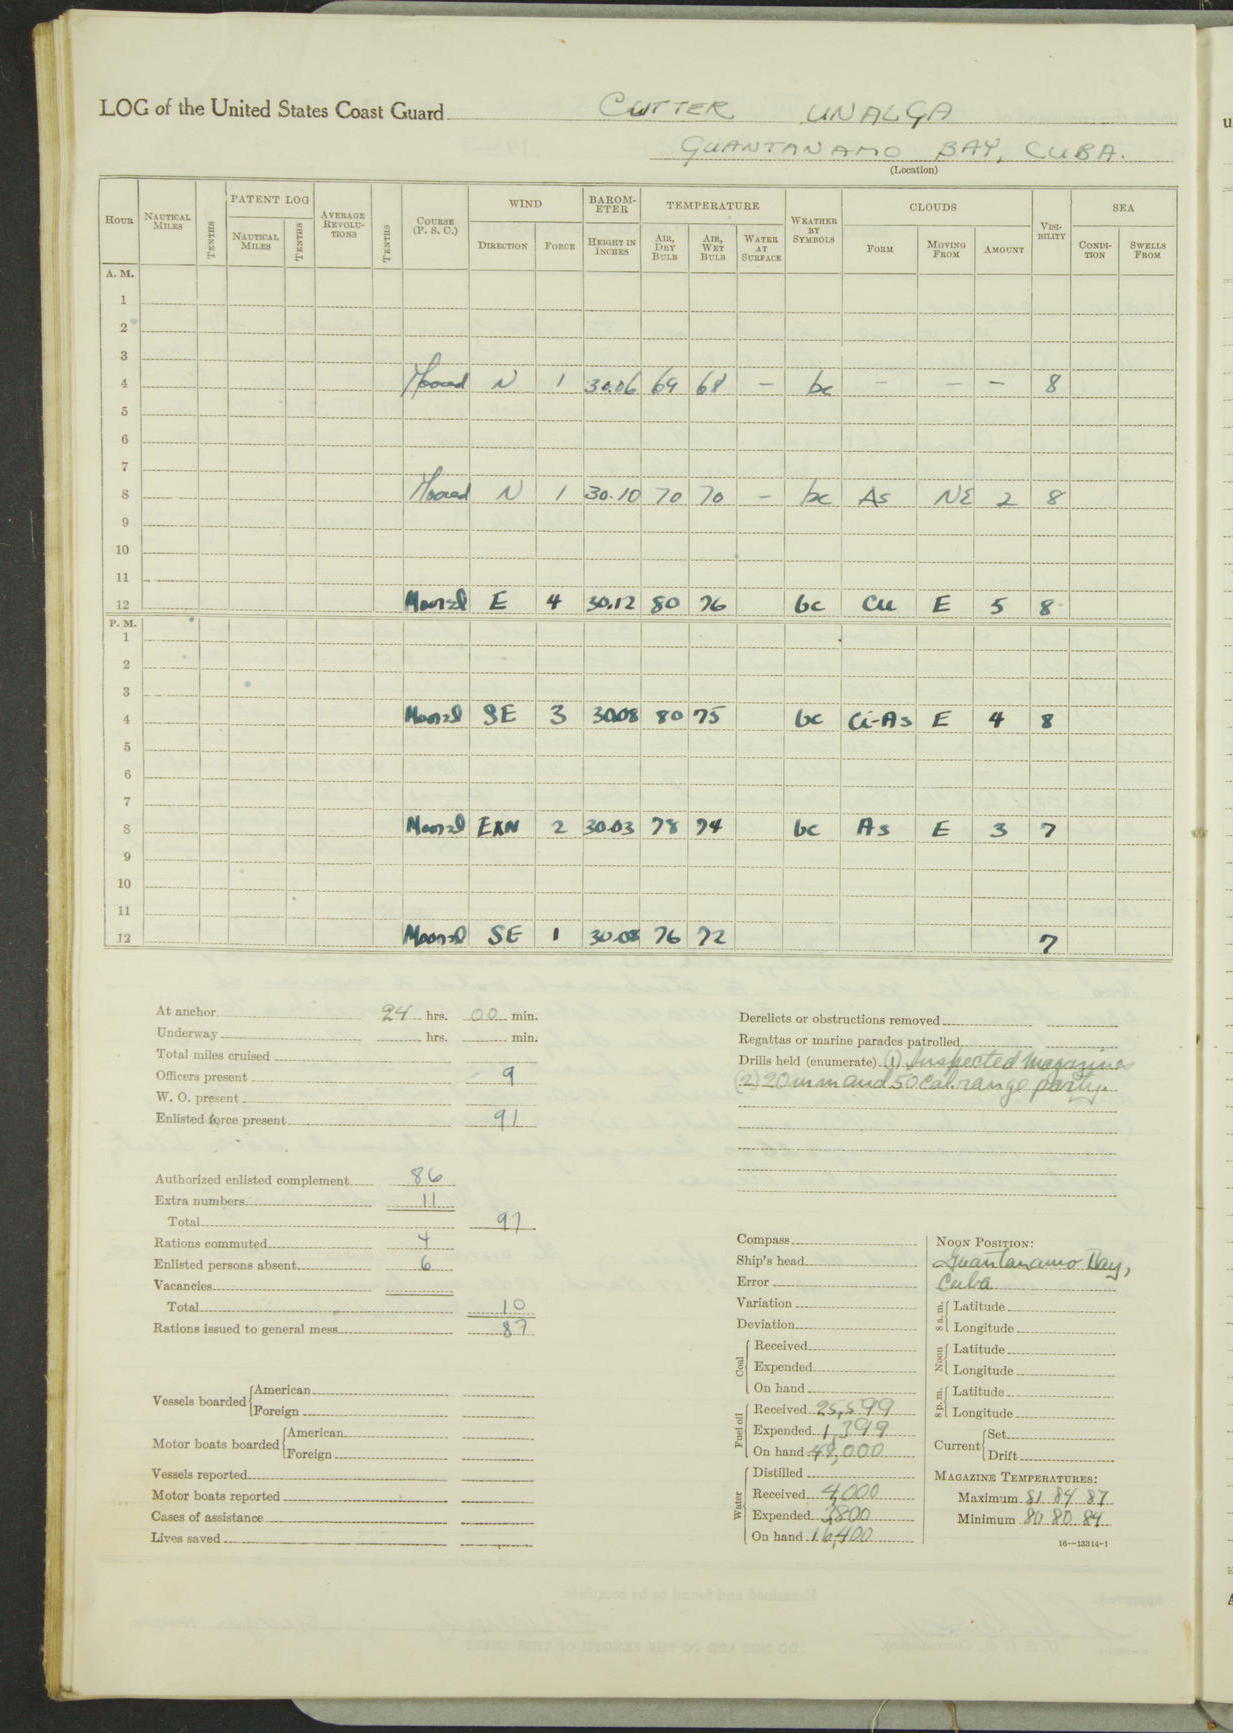 LOG of the United States Coast Guard CUTTER UNALGA
GUANTANAMO BAY, CUBA.
(Location)
HOUR NAUTICAL MILES TENTHS PATENT LOG NAUTICAL MILES TENTHS AVERAGE REVOLU-TIONS TENTHS COURSE (P. S. C.) WIND DIRECTION FORCE BAROM-ETER HEIGHT IN INCHES TEMPERATURE AIR, DRY BULB AIR, WET BULB WATER AT SURFACE WEATHER BY SYMBOLS CLOUDS FORM MOVING FROM AMOUNT VISI-BILITY SEA CONDI-TION SWELLS FROM
A. M.
1
2
3
4 Moored N 1 30.06 69 68 – bc – – – 8
5
6
7
8 Moored N 1 30.10 70 70 – bc As NE 2 8
9
10
11
12 Moored E 4 30.12 80 76 bc Cu E 5 8
P. M.
1
2
3
4 Moored SE 3 30.08 80 75 bc Ci-As E 4 8
5
6
7
8 Moored EXN 2 30.03 78 74 bc As E 3 7
9
10
11
12 Moored SE 1 30.08 76 72 7
At anchor 24 hrs. 00 min.
Underway hrs. min.
Total miles cruised
Officers present 9
W. O. present
Enlisted force present 91
Authorized enlisted complement 86
Extra numbers 11
Total 97
Rations commuted 4
Enlisted persons absent 6
Vacancies
Total 10
Rations issued to general mess 87
Vessels boarded American
Foreign
Motor boats boarded American
Foreign
Vessels reported
Motor boats reported
Cases of assistance
Lives saved
Derelicts or obstructions removed
Regattas or marine parades patrolled
Drills held (enumerate) (1) Inspected Magazines
(2) 20mm and 50 Cal. range party.
Compass
Ship's head
Error
Variation
Deviation
Coal Received
Expended
On hand
Fuel oil Received 25,599
Expended 1,399
On hand 48,000
Water Distilled
Received 4,000
Expended 3800
On hand 16,400
NOON POSITION:
Guantanamo Bay,
Cuba
8 a.m. Latitude
Longitude
Noon Latitude
Longitude
8 p.m. Latitude
Longitude
Current Set
Drift
MAGAZINE TEMPERATURES:
Maximum 81 84 87
Minimum 80 80 84
16—13314-1